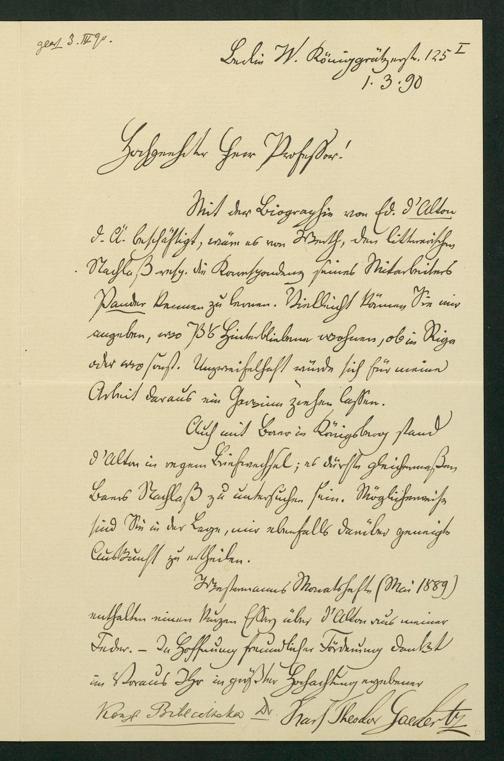 3. IV 90.
Berlin W. Königgrätzerstr. 125 I
1. 3. 90
Hochgeehrter Herr Professor!
Mit der Biographie von Ed. d'Alton
d. Ä. beschäftigt, wäre es von Werth, den litterarischen
Nachlaß resp. die Korrespondenz seines Mitarbeiters
Pander kennen zu lernen. Vielleicht können Sie mir
angeben, wo P's Hinterbliebene wohnen, ob in Riga
oder wo sonst. Unzweifelhaft würde sich für meine
Arbeit daraus ein Gewinn ziehen lassen.
Auch mit Baer in Königsberg stand
d'Alton in regem Briefwechsel; es dürfte gleichermaßen
Baers Nachlaß zu untersuchen sein. Möglicherweise
sind Sie in der Lage, mir ebenfalls darüber geneigte
Auskunft zu ertheilen.
Westermanns Monatshefte (Mai 1889)
enthalten einen kurzen Essay über d'Alton aus meiner
Feder. – In Hoffnung freundlicher Förderung dankt
im Voraus Ihr in größter Hochachtung ergebener
Dr Karl Theodor Gaedertz